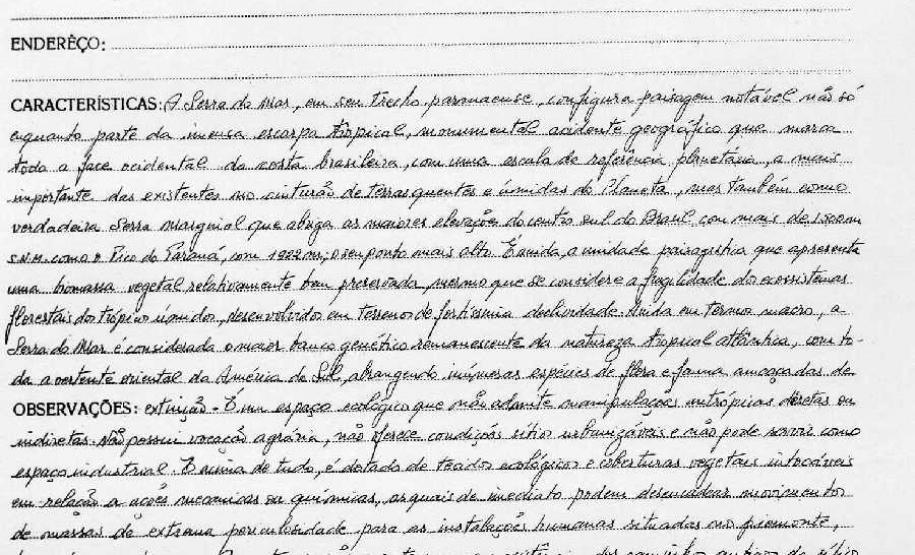 ENDERÊÇO:
CARACTERÍSTICAS: A Serra do Mar, em seu trecho paranaense, configura paisagem notável não só
enquanto parte da imensa escarpa tropical, monumental acidente geográfico que marca
toda a face ocidental da costa brasileira, com uma escala de referência planetária, a mais
importante das existentes no cinturão de terras quentes e úmidas do Planeta, mas também como
verdadeira Serra marginal que abriga as maiores elevações do centro sul do Brasil com mais de 1.800m
s.n.m. como o Pico do Paraná, com 1922m, o seu ponto mais alto. É ainda, a unidade paisagística que apresenta
uma biomassa vegetal relativamente bem preservada, mesmo que se considere a fragilidade dos ecossistemas
florestais dos trópicos úmidos, desenvolvidos em terrenos de fortíssima declividade. Ainda em termo macro, a
Serra do Mar é considerada o maior banco genético remanescente da natureza tropical atlântica, com to-
da a vertente oriental da América do Sul, abrangendo inúmeras espécies de flora e fauna ameaçadas de
OBSERVAÇÕES: extinção - É um espaço ecológico que não admite manipulações antrópicas diretas ou
indiretas. Não possui vocação agrária, não oferece condições sítios urbanizáveis e não pode servir como
espaço industrial. E acima de tudo, é dotado de tecidos ecológicos e coberturas vegetais intocáveis
em relação a ações mecânicas ou químicas, as quais de imediato podem desencadear movimentos
de massas de extrema periculosidade para as instalações humanas situadas no piemonte,
dos caminhos antigos do sítio